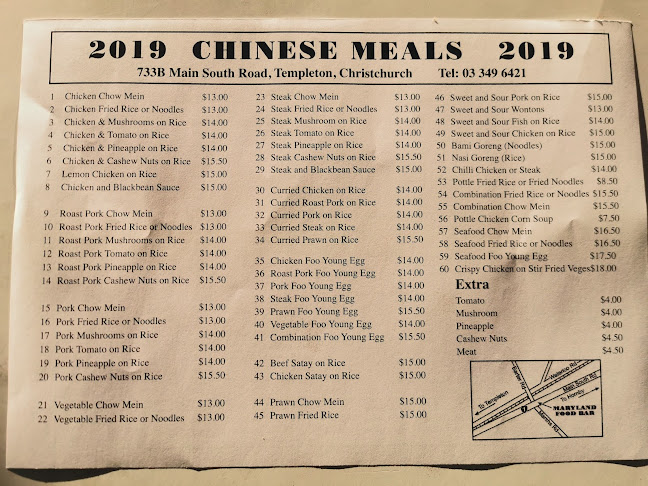 2019 CHINESE MEALS 2019
733B Main South Road, Templeton, Christchurch Tel: 03 349 6421
1 Chicken Chow Mein $13.00
2 Chicken Fried Rice or Noodles $13.00
3 Chicken & Mushrooms on Rice $14.00
4 Chicken & Tomato on Rice $14.00
5 Chicken & Pineapple on Rice $14.00
6 Chicken & Cashew Nuts on Rice $15.50
7 Lemon Chicken on Rice $15.00
8 Chicken and Blackbean Sauce $15.00
9 Roast Pork Chow Mein $13.00
10 Roast Pork Fried Rice or Noodles $13.00
11 Roast Pork Mushrooms on Rice $14.00
12 Roast Pork Tomato on Rice $14.00
13 Roast Pork Pineapple on Rice $14.00
14 Roast Pork Cashew Nuts on Rice $15.50
15 Pork Chow Mein $13.00
16 Pork Fried Rice or Noodles $13.00
17 Pork Mushrooms on Rice $14.00
18 Pork Tomato on Rice $14.00
19 Pork Pineapple on Rice $14.00
20 Pork Cashew Nuts on Rice $15.50
21 Vegetable Chow Mein $13.00
22 Vegetable Fried Rice or Noodles $13.00
23 Steak Chow Mein $13.00
24 Steak Fried Rice or Noodles $13.00
25 Steak Mushroom on Rice $14.00
26 Steak Tomato on Rice $14.00
27 Steak Pineapple on Rice $14.00
28 Steak Cashew Nuts on Rice $15.50
29 Steak and Blackbean Sauce $15.00
30 Curried Chicken on Rice $14.00
31 Curried Roast Pork on Rice $14.00
32 Curried Pork on Rice $14.00
33 Curried Steak on Rice $14.00
34 Curried Prawn on Rice $15.50
35 Chicken Foo Young Egg $14.00
36 Roast Pork Foo Young Egg $14.00
37 Pork Foo Young Egg $14.00
38 Steak Foo Young Egg $14.00
39 Prawn Foo Young Egg $15.50
40 Vegetable Foo Young Egg $14.00
41 Combination Foo Young Egg $15.50
42 Beef Satay on Rice $15.00
43 Chicken Satay on Rice $15.00
44 Prawn Chow Mein $15.00
45 Prawn Fried Rice $15.00
46 Sweet and Sour Pork on Rice $15.00
47 Sweet and Sour Wontons $13.00
48 Sweet and Sour Fish on Rice $14.00
49 Sweet and Sour Chicken on Rice $15.00
50 Bami Goreng (Noodles) $15.00
51 Nasi Goreng (Rice) $15.00
52 Chilli Chicken or Steak $14.00
53 Pottle Fried Rice or Fried Noodles $8.50
54 Combination Fried Rice or Noodles $15.50
55 Combination Chow Mein $15.50
56 Pottle Chicken Corn Soup $7.50
57 Seafood Chow Mein $16.50
58 Seafood Fried Rice or Noodles $16.50
59 Seafood Foo Young Egg $17.50
60 Crispy Chicken on Stir Fried Veges $18.00
Extra
Tomato $4.00
Mushroom $4.00
Pineapple $4.00
Cashew Nuts $4.50
Meat $4.50
Waterloo Rd
Main South Rd
To Templeton
To Hornby
MARYLAND
FOOD BAR